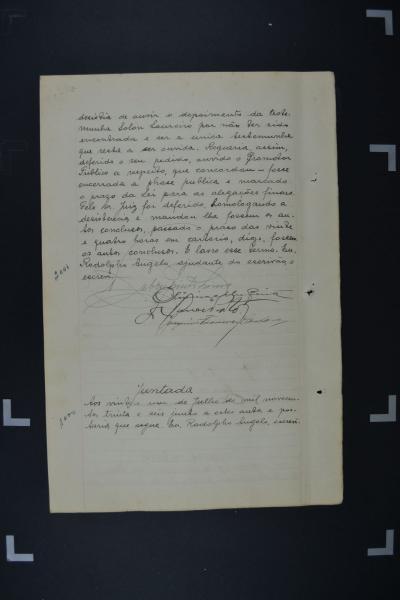 desistia de ouvir o depoimento da teste-
munha Solon Laureiro por não ter sido
encontrada e ser a unica testemunha
que resta a ser ouvida. Requeria assim,
deferido o seu pedido, ouvido o Promotor
Publico a respeito, que concordou — fosse
encerrada a phase publica e marcado
o prazo da Lei para as alegações finaes.
Pelo Sr. Juiz foi deferido, homologando a
desistencia e mandou lhe fossem os au-
tos conclusos, passado o prazo das vinte
e quatro horas em cartorio, digo, fossem
os autos conclusos. E lavro esse termo. Eu,
Rodolpho Angelo, ajudante do escrivão, o
escrevi.
Juntada
Aos vinte e um de Julho de mil novecen-
tos trinta e seis junto a estes autos a por-
taria que segue. Eu, Rodolpho Angelo, escrevi.